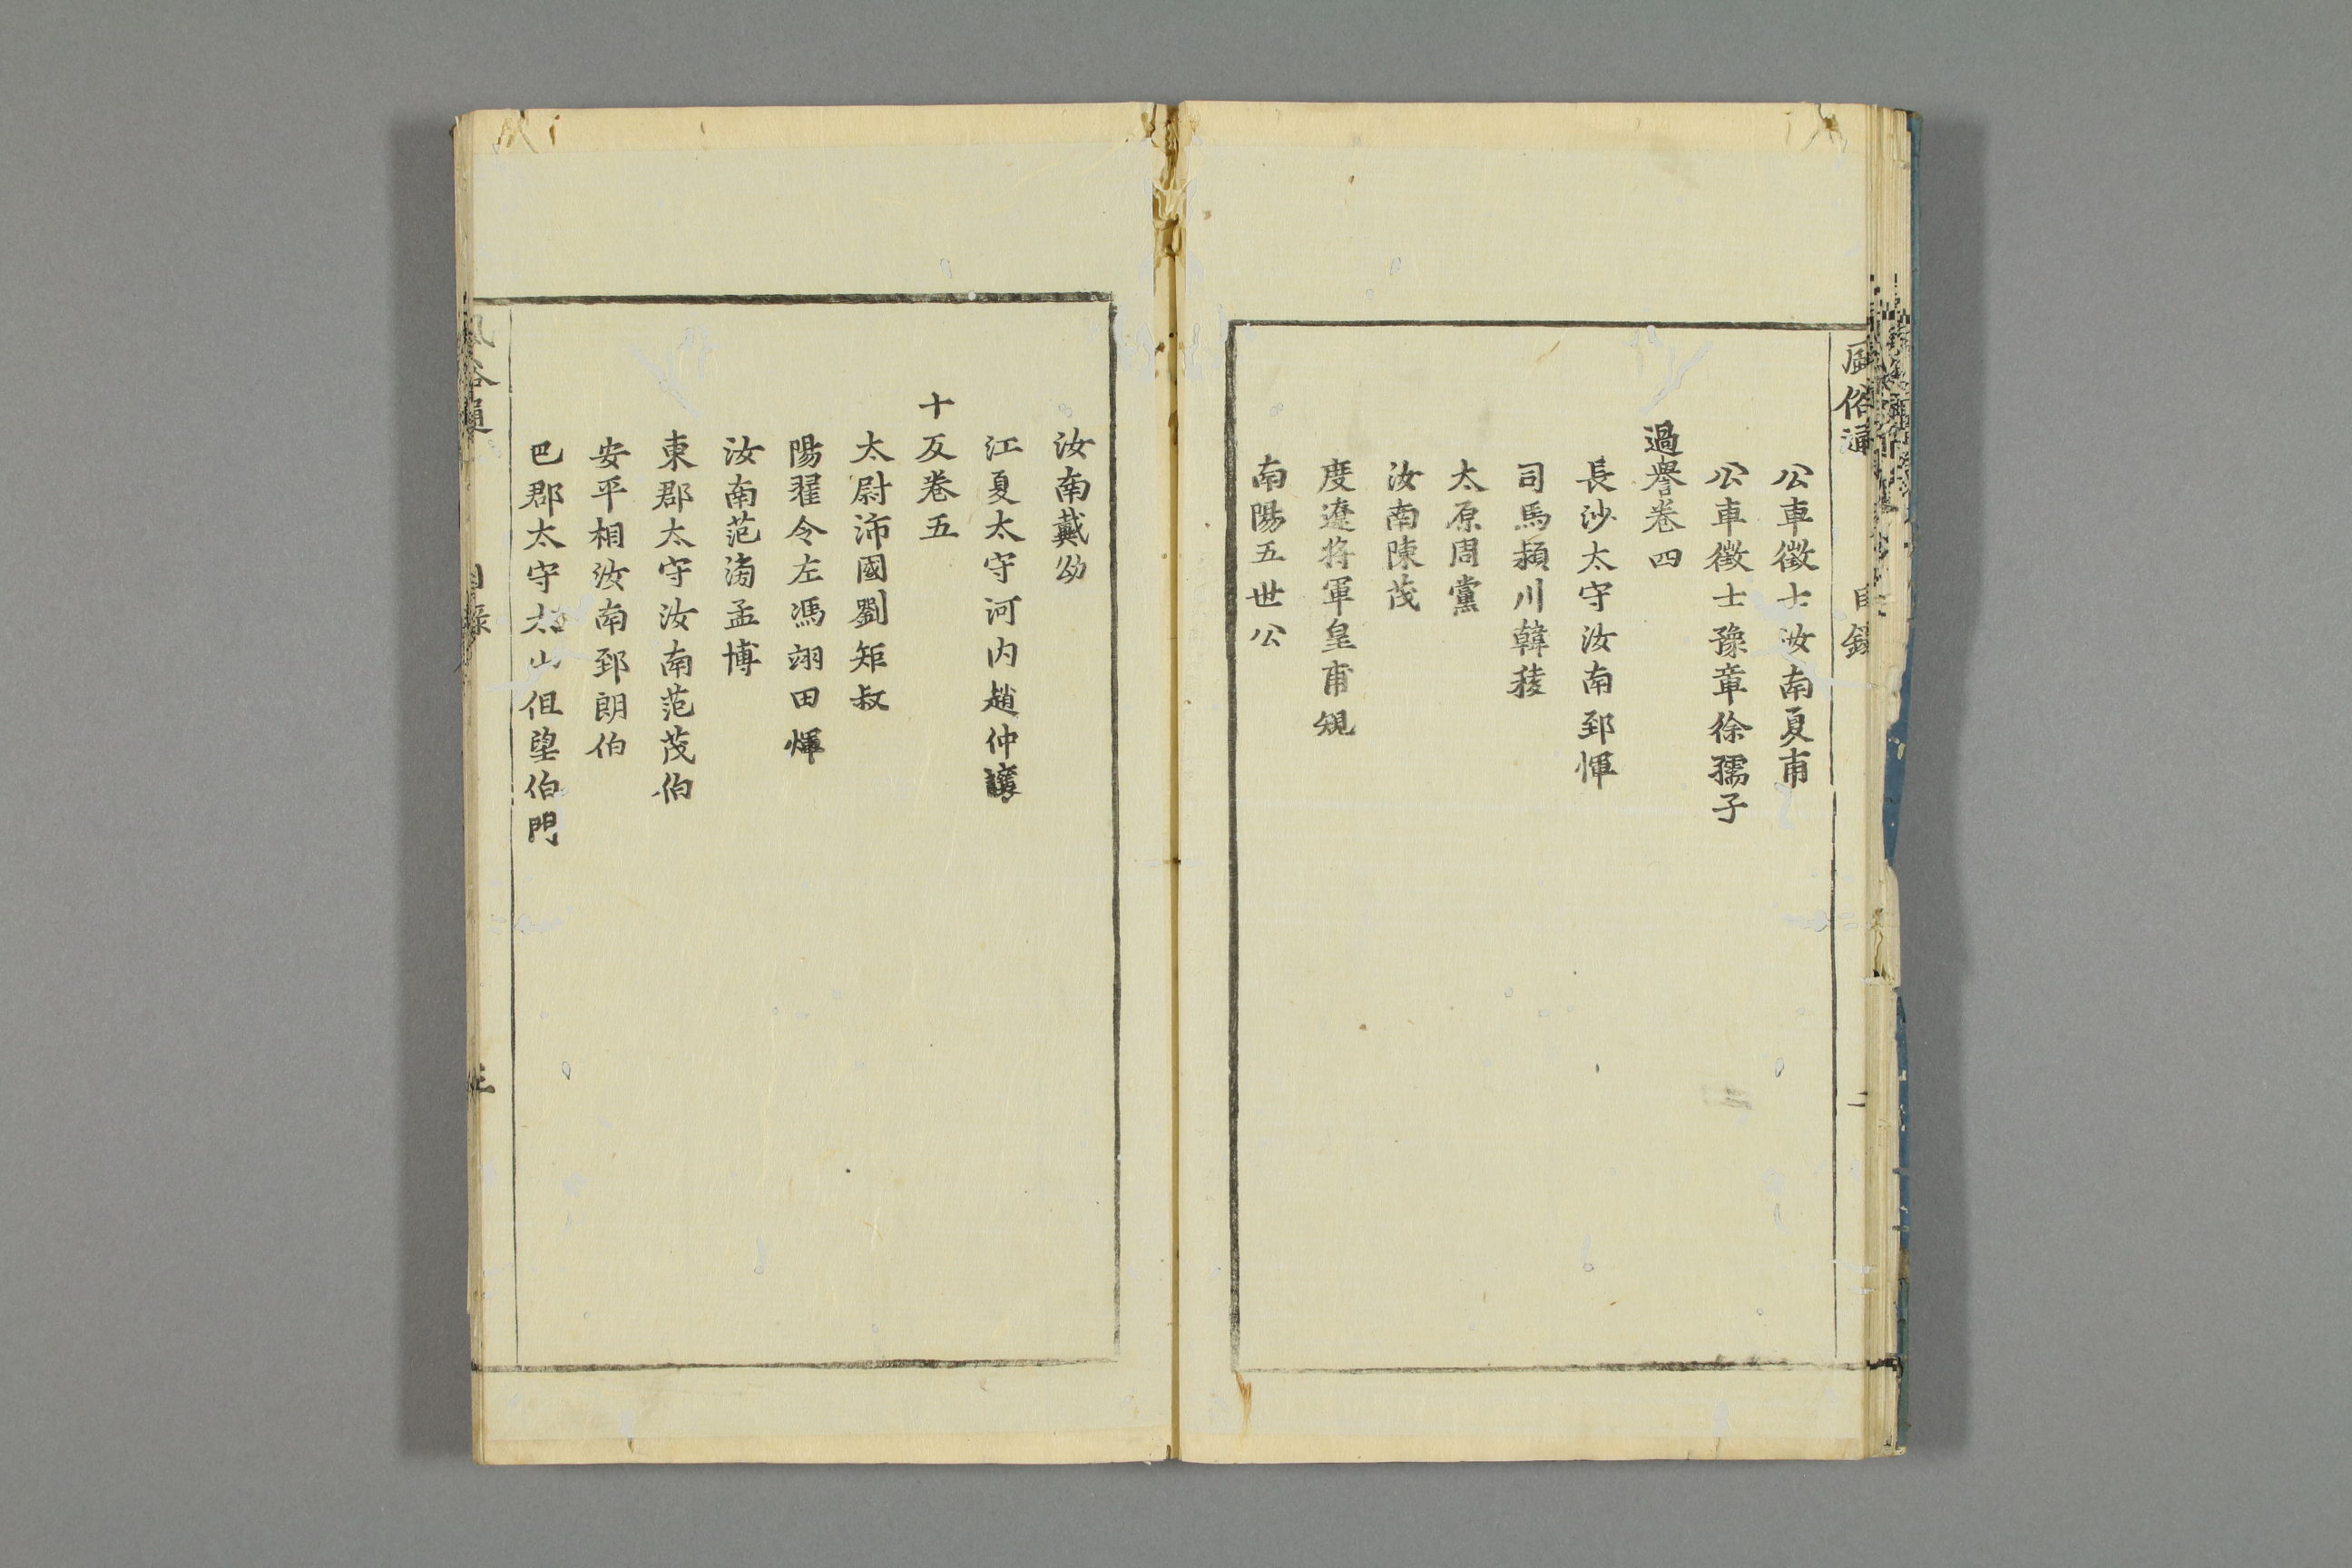 風俗通 目錄 二
公車徵士汝南夏甫
公車徵士豫章徐孺子
過譽卷四
長沙太守汝南郅惲
司馬潁川韓稜
太原周黨
汝南陳茂
度遼將軍皇甫規
南陽五世公
汝南戴幼
江夏太守河内趙仲讓
十反卷五
太尉沛國劉矩叔
陽翟令左馮翊田煇
汝南范滂孟博
東郡太守汝南范茂伯
安平相汝南郅朗伯
巴郡太守太山但望伯門
風俗通 目錄 三